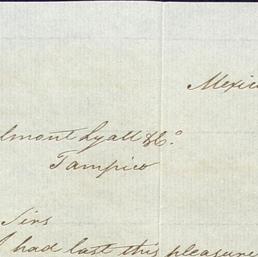 Mexic
lmont Lyall & Co.
Tampico
Sirs
I had last this pleasure